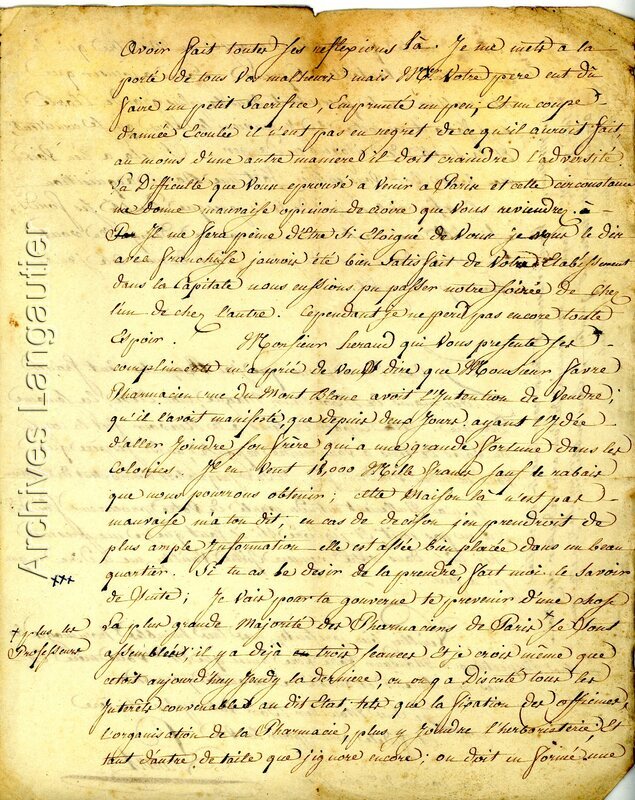 Avoir fait toutes ses reflexions là. Je me mets a la
porté de tous vos malheurs mais Mr Votre pere eut dû
faire un petit Sacrifice, Emprunté un peu, Et un coupe
d'année Ecoulée il n'eut pas eu regret de ce qu'il auroit fait,
au moins d'une autre manière il doit craindre l'adversité
La Difficulté que Vous eprouvé a Venir a Paris et cette circonstance
me donne mauvaise opinion de croire que Vous reviendrez
Il me fera peine d'Etre si Eloigné de Vous je vous le dis
avec franchise jaurois été bien Satisfait de Votre Etablissement
dans la Capitale nous eussions pu passer notre soirée de Chez
l'un de chez l'autre. Cependant je ne perd pas encore toute
Espoir. Monsieur heraud qui Vous presente ses
compliments m'a prié de Vous dire que Monsieur favre
Pharmacien rue du Mont Blanc avoit l'Intention de Vendre;
qu'il l'avoit manifesté que depuis deux Jours, ayant l'Idée
d'aller Joindre son frère qui a une grande fortune dans les
Colonies. Il en Veut 18,000 Mille francs sauf le rabait
que nous pourrons obtenir; cette Maison là n'est pas
mauvaise m'a ton dit, en cas de decison j'en prendroit de
plus ample Information elle est assée bien placée dans un beau
quartier. Si tu as le desir de la prendre, fait moi le savoir
de Suite; Je Vais pour ta gouverne te prevenir d'une chose
xxx
La plus grande Majorité des Pharmaciens de Paris + se sont
+ plus les
Professeurs
assemblées il y a déjà trois seances Et je crois même que
cetoit aujourd'huy Jeudy la derniere, ou on y a Discuté tous les
Interêts convenables au dit Etat, tels que la fixation des officines,
l'organisation de la Pharmacie, plus y Joindre l'herboristerie Et
tant d'autre detaile que j'ignore encore; on doit en formé une
Archives Langautier